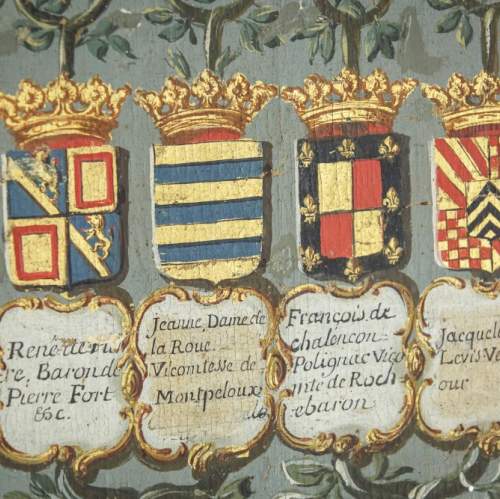 René de
re, Baron de
Pierre Fort
&c.
Jeanne, Dame de
la Roue
Vicomtesse de
Montpeloux
François de
chalencon
Polignac Vico
mte de Roch
ebaron
Jacquel
Levis V
our